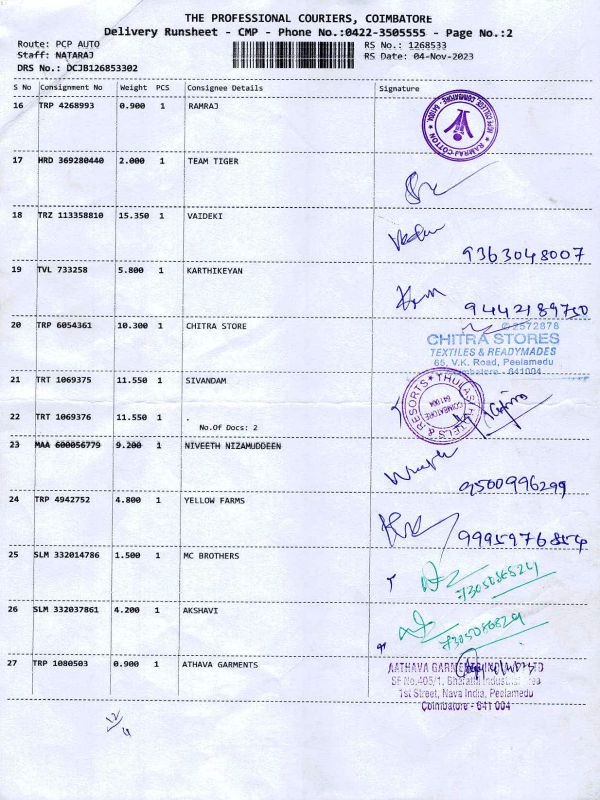 THE PROFESSIONAL COURIERS, COIMBATORE
Delivery Runsheet - CMP - Phone No.:0422-3505555 - Page No.:2
Route: PCP AUTO
RS No.: 1268533
Staff: NATARAJ
RS Date: 04-Nov-2023
DRS No.: DCJB126853302
S No Consignment No Weight PCS Consignee Details Signature
16 TRP 4268993 0.900 1 RAMRAJ
RAMRAJ COTTON
17 HRD 369280440 2.000 1 TEAM TIGER
18 TRZ 113358810 15.350 1 VAIDEKI
9363048007
19 TVL 733258 5.800 1 KARTHIKEYAN
9442189750
20 TRP 6054361 10.300 1 CHITRA STORE
2572878
CHITRA STORES
TEXTILES & READYMADES
65, V.K. Road, Peelamedu
Coimbatore - 641004
21 TRT 1069375 11.550 1 SIVANDAM
THULASI HOTELS & RESORTS
COIMBATORE
641 004
22 TRT 1069376 11.550 1 .
No.Of Docs: 2
23 MAA 600056779 9.200 1 NIVEETH NIZAMUDDEEN
9500996299
24 TRP 4942752 4.800 1 YELLOW FARMS
9995976854
25 SLM 332014786 1.500 1 MC BROTHERS
26 SLM 332037861 4.200 1 AKSHAVI
27 TRP 1080503 0.900 1 ATHAVA GARMENTS
SF No.405/1, Bharathi Industrial Area
1st Street, Nava India, Peelamedu
Coimbatore - 641 004
12/4